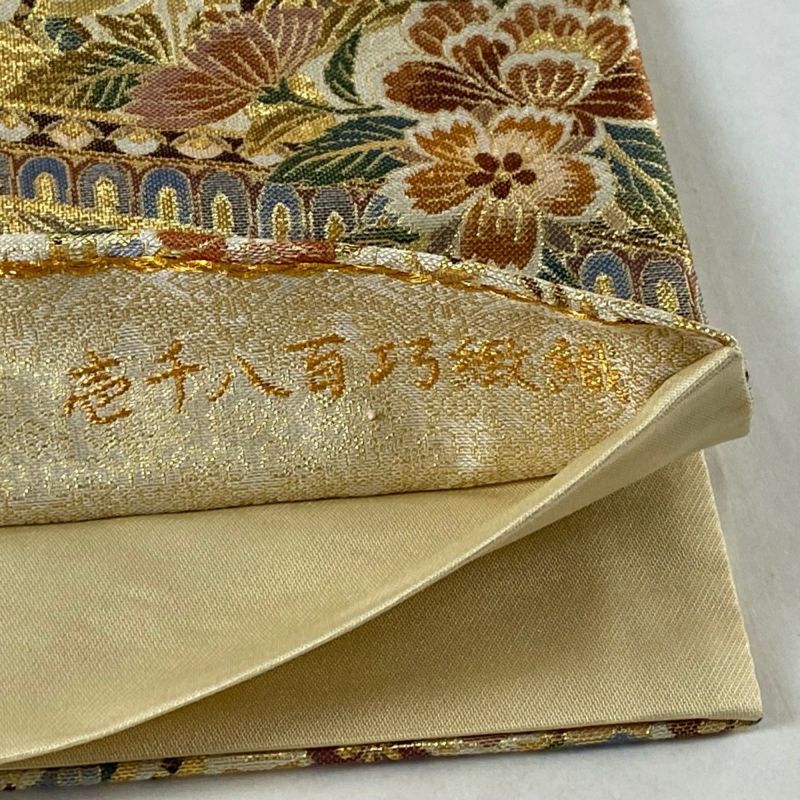 壱千八百巧緻織